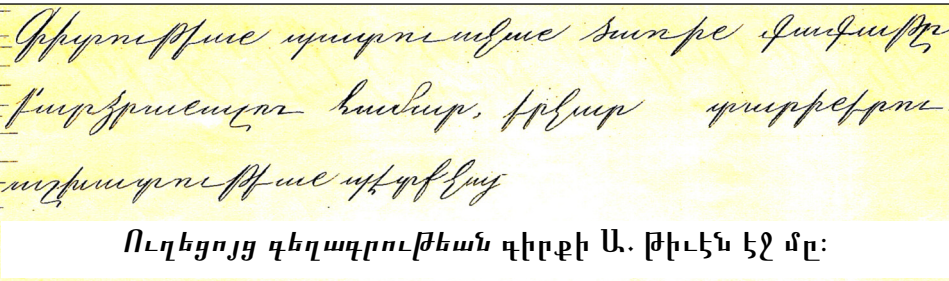 Գիտութեան պատուական ծառին գագաթը
բարձրանալու համար, երկար տարիներու
աշխատութեան պէտք կայ
Ուղեցոյց գեղագրութեան գիրքի Ա. թիւէն էջ մը: